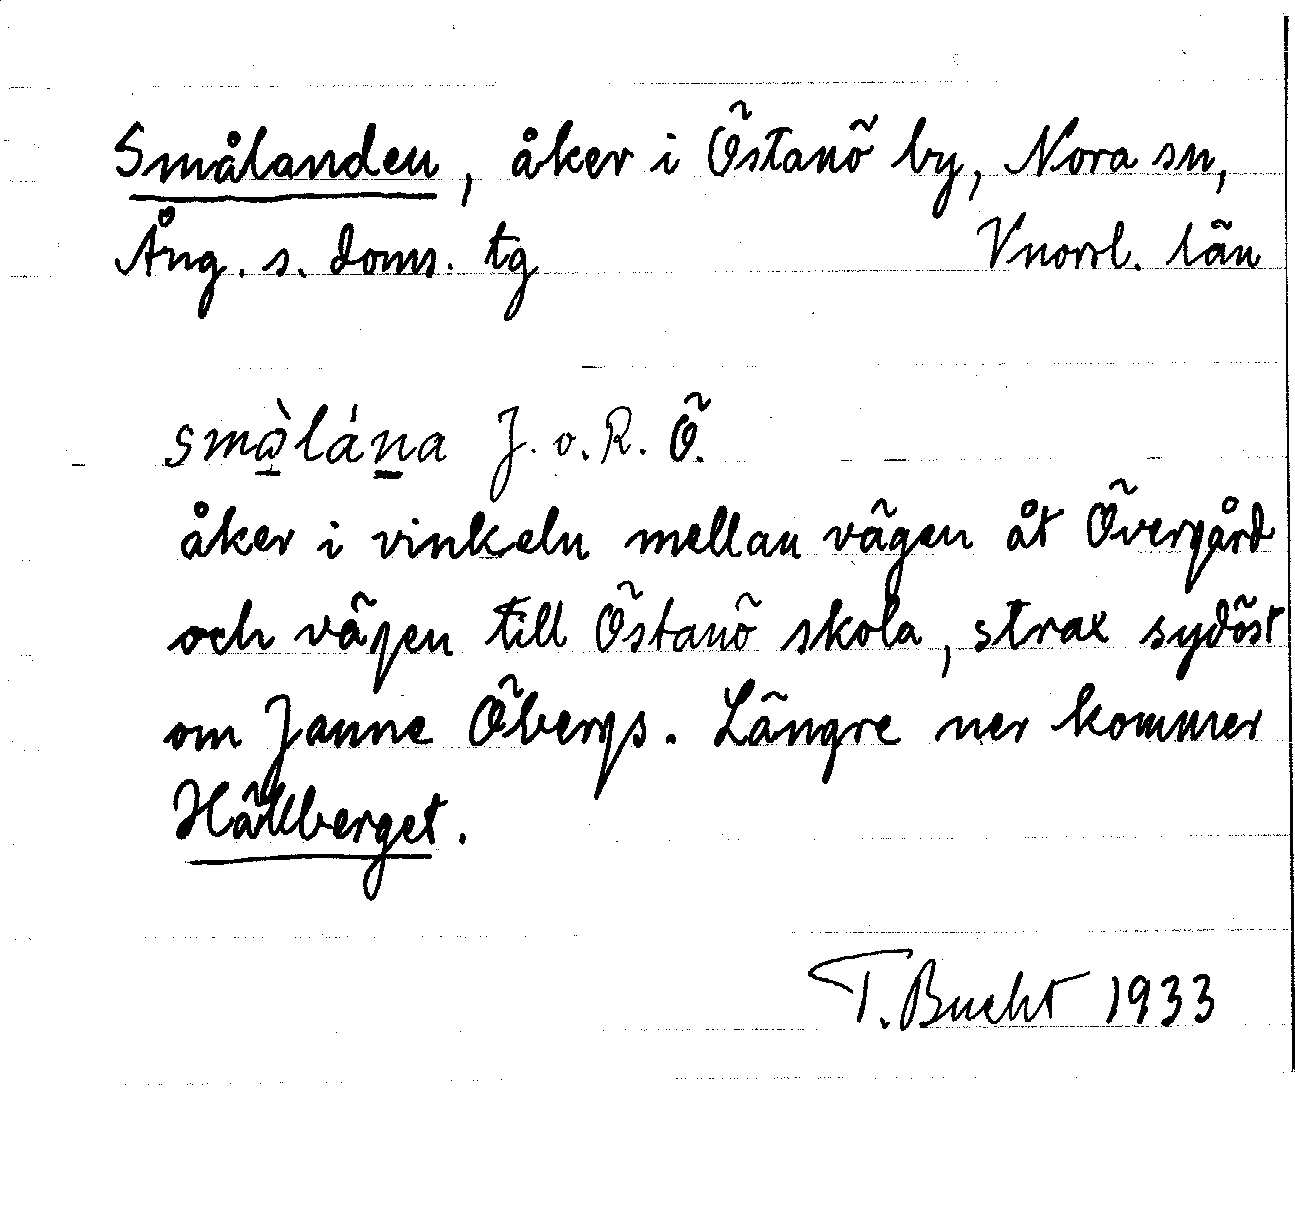 Smålanden, åker i Östanö by, Nora sn,
Ång. s. doms. tg Vnorrl. län
smò̱lána̱ J. o. R. Ö.
åker i vinkeln mellan vägen åt Övergård
och vägen till Östanö skola, strax sydöst
om Janne Öbergs. Längre ner kommer
Hällberget.
T. Bucht 1933